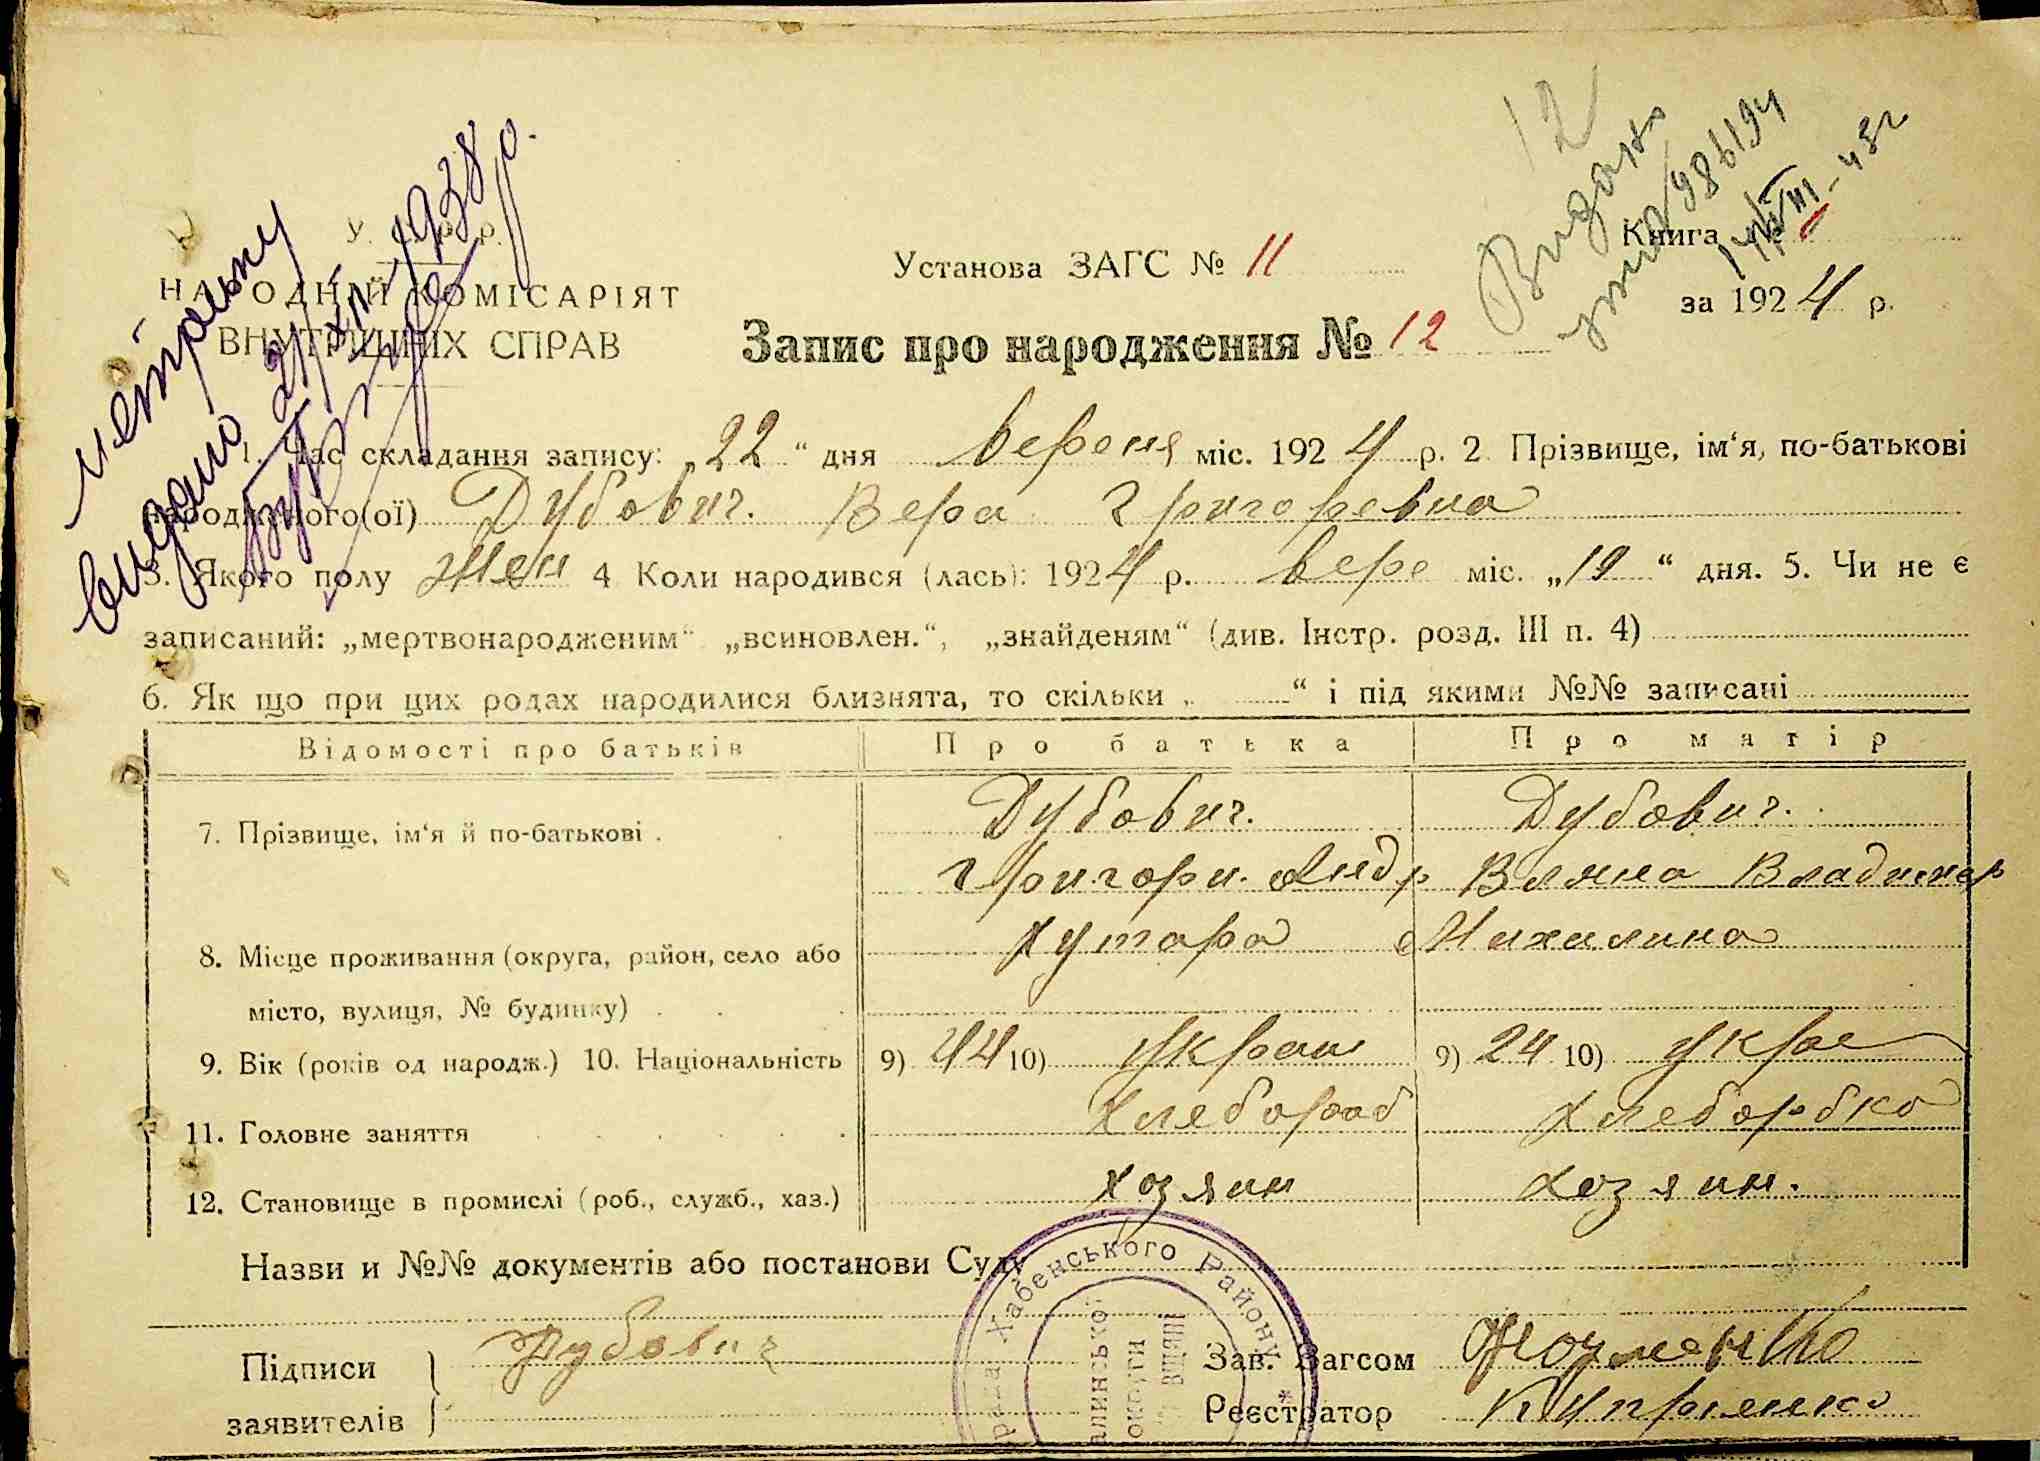 12
Видано
986194
метрыку
видано 21/XII 1938 р.
У. С. Р. Р.
НАРОДНІЙ КОМІСАРІЯТ
ВНУТРІШНІХ СПРАВ
Установа ЗАГС № 11
Книга №
за 1924 р.
Запис про народження № 12
1. Час складання запису: „22“ дня вересня міс. 1924 р. 2. Прізвище, ім‘я, по-батькові
народженого(ої) Дубович. Вера Григоревна
3. Якого полу жен 4 Коли народився (лась): 1924 р. вере міс. „19“ дня. 5. Чи не є
записаний: „мертвонародженим“ „всиновлен.“, „знайденям“ (див. Інстр. розд. III п. 4)
6. Як що при цих родах народилися близнята, то скільки „ “ і під якими №№ записані
Відомості про батьків Про батька Про матір
7. Прізвище, ім‘я й по-батькові . Дубович. Дубович.
Григори. Андр Владимер
8. Місце проживання (округа, район, село або хутара Михалина
місто, вулиця, № будинку)
9. Вік (років од народж.) 10. Національність 9) 44 10) Украи 9) 24 10) укра
11. Головне заняття хлебораб хлеборбка
12. Становище в промислі (роб., служб., хаз.) хозяин хозяин.
Назви и №№ документів або постанови Суду
Хабенського Району
Підписи Дубович Зав. Загсом Науменко
заявителів Реєстратор Куприенко